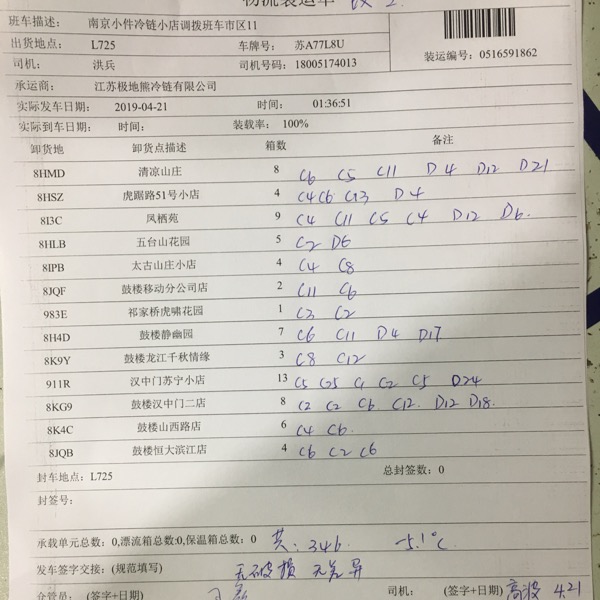 物流装运单
班车描述: 南京小件冷链小店调拨班车市区11
出货地点: L725 车牌号: 苏A77L8U
司机: 洪兵 司机号码: 18005174013 装运编号: 0516591862
承运商: 江苏极地熊冷链有限公司
实际发车日期: 2019-04-21 时间: 01:36:51
实际到车日期: 时间: 装载率: 100%
卸货地 卸货点描述 箱数 备注
8HMD 清凉山庄 8 C6 C5 C11 D4 D12 D21
8HSZ 虎踞路51号小店 4 C4 C6 C13 D4
8I3C 凤栖苑 9 C4 C11 C5 C4 D12 D6
8HLB 五台山花园 5 C2 D6
8IPB 太古山庄小店 4 C4 C8
8JQF 鼓楼移动分公司店 2 C11 C6
983E 祁家桥虎啸花园 1 C3 C2
8H4D 鼓楼静幽园 7 C6 C11 D4 D17
8K9Y 鼓楼龙江千秋情缘 3 C8 C12
911R 汉中门苏宁小店 13 C5 C25 C1 C2 C5 D24
8KG9 鼓楼汉中门二店 8 C2 C2 C6 C12 D12 D18
8K4C 鼓楼山西路店 6 C4 C6
8JQB 鼓楼恒大滨江店 4 C6 C2 C6
封车地点: L725 总封签数: 0
封签号:
承载单元总数: 0,漂流箱总数:0,保温箱总数: 0 共: 346 -5.1℃
发车签字交接: (规范填写) 无破损 无差异
仓管员: (签字+日期) 司机: (签字+日期) 高波 4.21